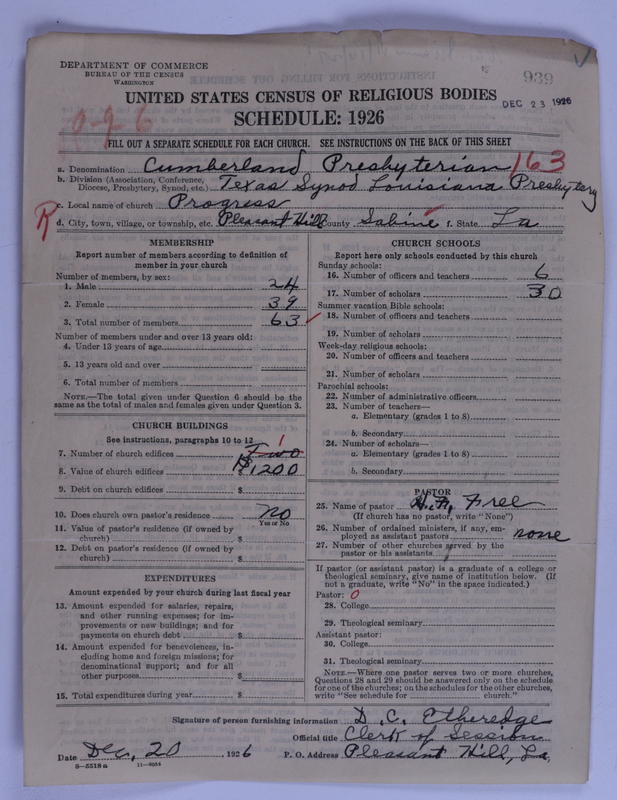 DEPARTMENT OF COMMERCE
BUREAU OF THE CENSUS
WASHINGTON
939
UNITED STATES CENSUS OF RELIGIOUS BODIES
DEC 23 1926
SCHEDULE: 1926
0-9-6
FILL OUT A SEPARATE SCHEDULE FOR EACH CHURCH. SEE INSTRUCTIONS ON THE BACK OF THIS SHEET
a. Denomination Cumberland Presbyterian 163
b. Division (Association, Conference, Diocese, Presbytery, Synod, etc.) Texas Synod Louisiana Presbytery
c. Local name of church Progress
R
d. City, town, village, or township, etc. Pleasant Hill County Sabine f. State La
MEMBERSHIP
Report number of members according to definition of
member in your church
Number of members, by sex:
1. Male 24
2. Female 39
3. Total number of members 63
Number of members under and over 13 years old:
4. Under 13 years of age
5. 13 years old and over
6. Total number of members
NOTE.—The total given under Question 6 should be the
same as the total of males and females given under Question 3.
CHURCH BUILDINGS
See instructions, paragraphs 10 to 12
7. Number of church edifices Two 1
8. Value of church edifices $1200
9. Debt on church edifices $
10. Does church own pastor's residence? No
Yes or No
11. Value of pastor's residence (if owned by
church) $
12. Debt on pastor's residence (if owned by
church) $
EXPENDITURES
Amount expended by your church during last fiscal year
13. Amount expended for salaries, repairs,
and other running expenses; for im-
provements or new buildings; and for
payments on church debt $
14. Amount expended for benevolences, in-
cluding home and foreign missions; for
denominational support; and for all
other purposes $
15. Total expenditures during year $
CHURCH SCHOOLS
Report here only schools conducted by this church
Sunday schools:
16. Number of officers and teachers 6
17. Number of scholars 30
Summer vacation Bible schools:
18. Number of officers and teachers
19. Number of scholars
Week-day religious schools:
20. Number of officers and teachers
21. Number of scholars
Parochial schools:
22. Number of administrative officers
23. Number of teachers—
a. Elementary (grades 1 to 8)
b. Secondary
24. Number of scholars—
a. Elementary (grades 1 to 8)
b. Secondary
PASTOR
25. Name of pastor Free
(If church has no pastor, write "None")
26. Number of ordained ministers, if any, em-
ployed as assistant pastors none
27. Number of other churches served by the
pastor or his assistants
If pastor (or assistant pastor) is a graduate of a college or
theological seminary, give name of institution below. (If
not a graduate, write "No" in the space indicated.)
Pastor: 0
28. College
29. Theological seminary
Assistant pastor:
30. College
31. Theological seminary
NOTE.—Where one pastor serves two or more churches,
Questions 28 and 29 should be answered only on the schedule
for one of the churches; on the schedules for the other churches,
write "See schedule for church."
Signature of person furnishing information D. C. Etheredge
Official title Clerk of Session
Date Dec, 20 1926 P. O. Address Pleasant Hill, La,
8—5518a 11—9054